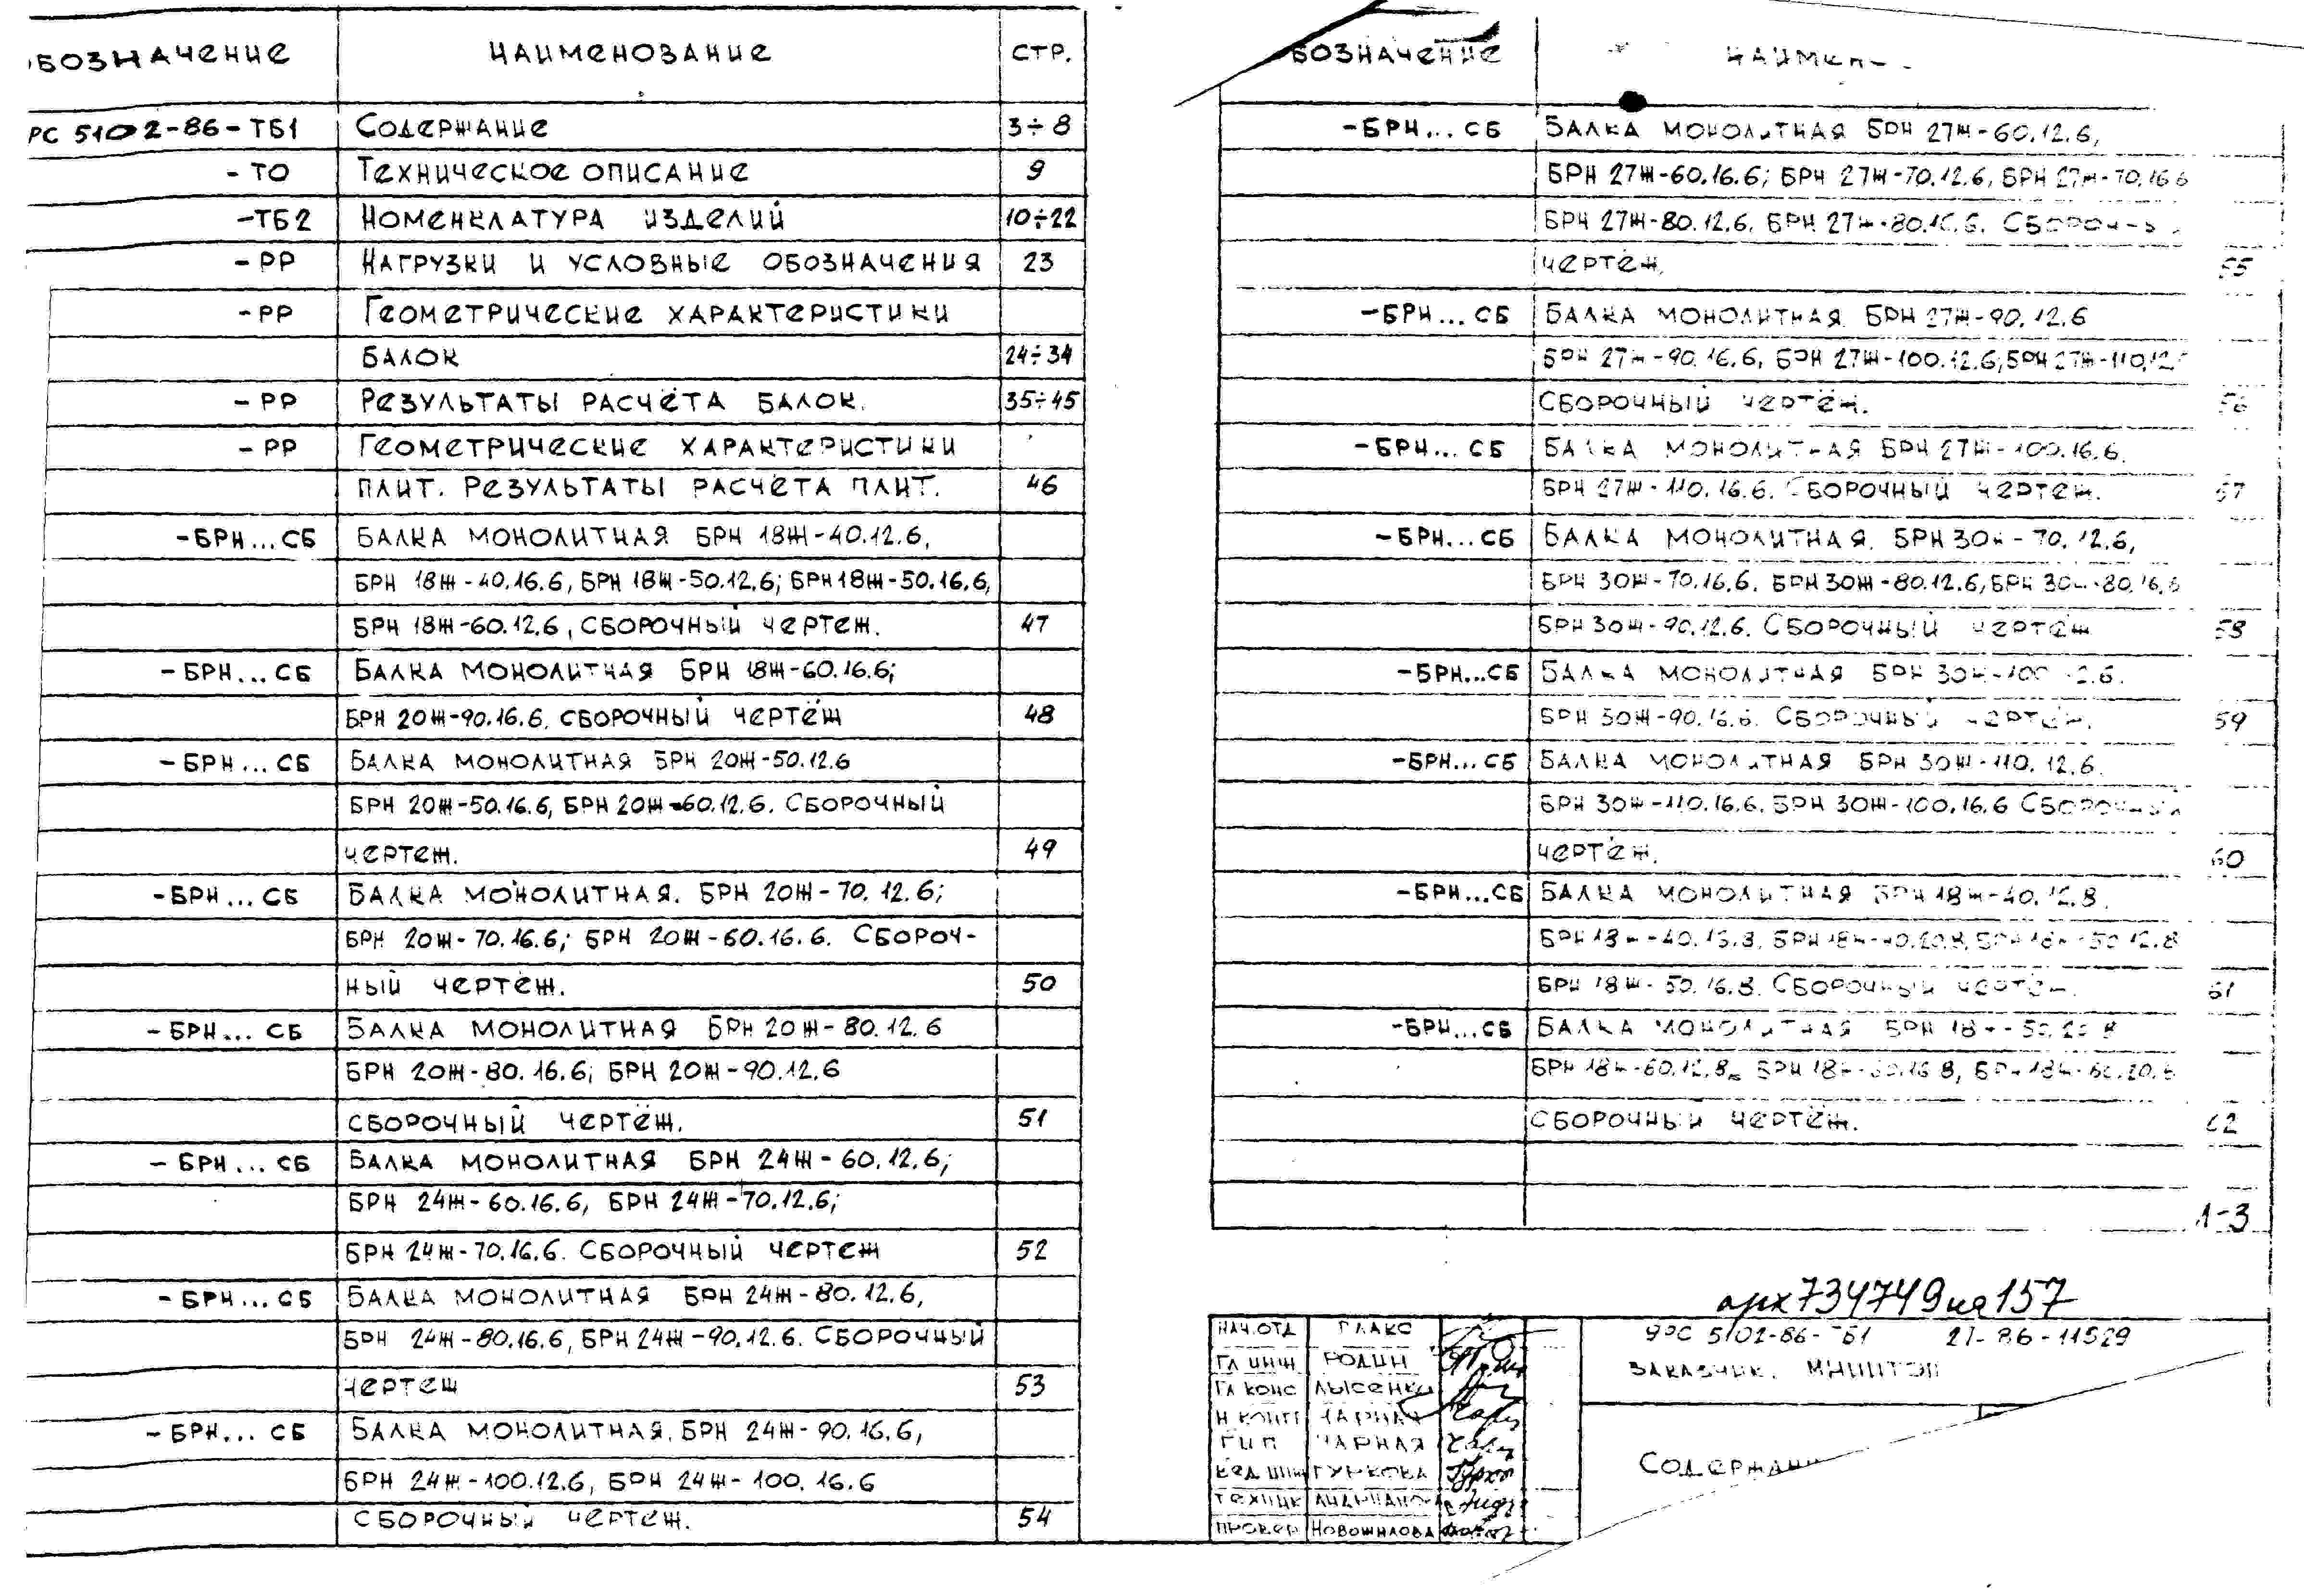 ОБОЗНАЧЕНИЕ НАИМЕНОВАНИЕ СТР.
РС 5102-86-ТБ1 СОДЕРЖАНИЕ 3÷8
-ТО ТЕХНИЧЕСКОЕ ОПИСАНИЕ 9
-ТБ2 НОМЕНКЛАТУРА ИЗДЕЛИЙ 10÷22
-РР НАГРУЗКИ И УСЛОВНЫЕ ОБОЗНАЧЕНИЯ 23
-РР ГЕОМЕТРИЧЕСКИЕ ХАРАКТЕРИСТИКИ
БАЛОК 24÷34
-РР РЕЗУЛЬТАТЫ РАСЧЁТА БАЛОК. 35÷45
-РР ГЕОМЕТРИЧЕСКИЕ ХАРАКТЕРИСТИКИ
ПЛИТ. РЕЗУЛЬТАТЫ РАСЧЁТА ПЛИТ. 46
-БРН...СБ БАЛКА МОНОЛИТНАЯ БРН 18Ж-40.12.6,
БРН 18Ж-40.16.6, БРН 18Ж-50.12.6; БРН 18Ж-50.16.6,
БРН 18Ж-60.12.6, СБОРОЧНЫЙ ЧЕРТЕЖ. 47
-БРН...СБ БАЛКА МОНОЛИТНАЯ БРН 18Ж-60.16.6;
БРН 20Ж-90.16.6. СБОРОЧНЫЙ ЧЕРТЁЖ 48
-БРН...СБ БАЛКА МОНОЛИТНАЯ БРН 20Ж-50.12.6
БРН 20Ж-50.16.6, БРН 20Ж-60.12.6. СБОРОЧНЫЙ
ЧЕРТЕЖ. 49
-БРН...СБ БАЛКА МОНОЛИТНАЯ. БРН 20Ж-70.12.6;
БРН 20Ж-70.16.6; БРН 20Ж-60.16.6. СБОРОЧ-
НЫЙ ЧЕРТЁЖ. 50
-БРН...СБ БАЛКА МОНОЛИТНАЯ БРН 20Ж-80.12.6
БРН 20Ж-80.16.6; БРН 20Ж-90.12.6
СБОРОЧНЫЙ ЧЕРТЁЖ. 51
-БРН...СБ БАЛКА МОНОЛИТНАЯ БРН 24Ж-60.12.6;
БРН 24Ж-60.16.6, БРН 24Ж-70.12.6;
БРН 24Ж-70.16.6. СБОРОЧНЫЙ ЧЕРТЕЖ 52
-БРН...СБ БАЛКА МОНОЛИТНАЯ БРН 24Ж-80.12.6,
БРН 24Ж-80.16.6, БРН 24Ж-90.12.6. СБОРОЧНЫЙ
ЧЕРТЕЖ 53
-БРН...СБ БАЛКА МОНОЛИТНАЯ. БРН 24Ж-90.16.6,
БРН 24Ж-100.12.6, БРН 24Ж-100.16.6
СБОРОЧНЫЙ ЧЕРТЕЖ. 54
БОЗНАЧЕНИЕ
-БРН...СБ БАЛКА МОНОЛИТНАЯ БРН 27Ж-60.12.6,
БРН 27Ж-60.16.6; БРН 27Ж-70.12.6, БРН 27Ж-70.16.6
БРН 27Ж-80.12.6, БРН 27Ж-80.16.6.
ЧЕРТЁЖ. 55
-БРН...СБ БАЛКА МОНОЛИТНАЯ БРН 27Ж-90.12.6
БРН 27Ж-90.16.6, БРН 27Ж-100.12.6, БРН 27Ж-110.12
СБОРОЧНЫЙ ЧЕРТЁЖ. 56
-БРН...СБ БАЛКА МОНОЛИТНАЯ БРН 27Ж-100.16.6.
БРН 27Ж-110.16.6. СБОРОЧНЫЙ ЧЕРТЕЖ. 57
-БРН...СБ БАЛКА МОНОЛИТНАЯ. БРН 30Ж-70.12.6,
БРН 30Ж-70.16.6. БРН 30Ж-80.12.6, БРН 30Ж-80.16.6
БРН 30Ж-90.12.6. СБОРОЧНЫЙ ЧЕРТЁЖ 58
-БРН...СБ БАЛКА МОНОЛИТНАЯ БРН 30Ж-100.12.6.
БРН 30Ж-90.16.6. СБОРОЧНЫЙ ЧЕРТЁЖ. 59
-БРН...СБ БАЛКА МОНОЛИТНАЯ БРН 30Ж-110.12.6.
БРН 30Ж-110.16.6. БРН 30Ж-100.16.6 СБОРОЧНЫЙ
ЧЕРТЁЖ. 60
-БРН...СБ БАЛКА МОНОЛИТНАЯ БРН 18Ж-40.12.8.
БРН 18Ж-40.16.8, БРН 18Ж-40.20.8, БРН 18Ж-50.12.8
БРН 18Ж-50.16.8. СБОРОЧНЫЙ ЧЕРТЁЖ. 61
-БРН...СБ БАЛКА МОНОЛИТНАЯ БРН 18Ж-50.20.8
БРН 18Ж-60.12.8, БРН 18Ж-60.16.8, БРН 18Ж-60.20.8
СБОРОЧНЫЙ ЧЕРТЁЖ. 62
Л-3
арх 734749 на 157
НАЧ.ОТД ГЛАКС
ГЛ ИНЖ РОДИН
ГЛ КОНС ЛЫСЕНКО
Н КОНТ ЧАРНАЯ
ГИП ЧАРНАЯ
ВЕД ИНЖ ГУРКОВА
ТЕХНИК
ПРОВЕР НОВОЖИЛОВА
РС 5102-86-ТБ1 21-86-11529
ЗАКАЗЧИК.
СОДЕРЖАНИ